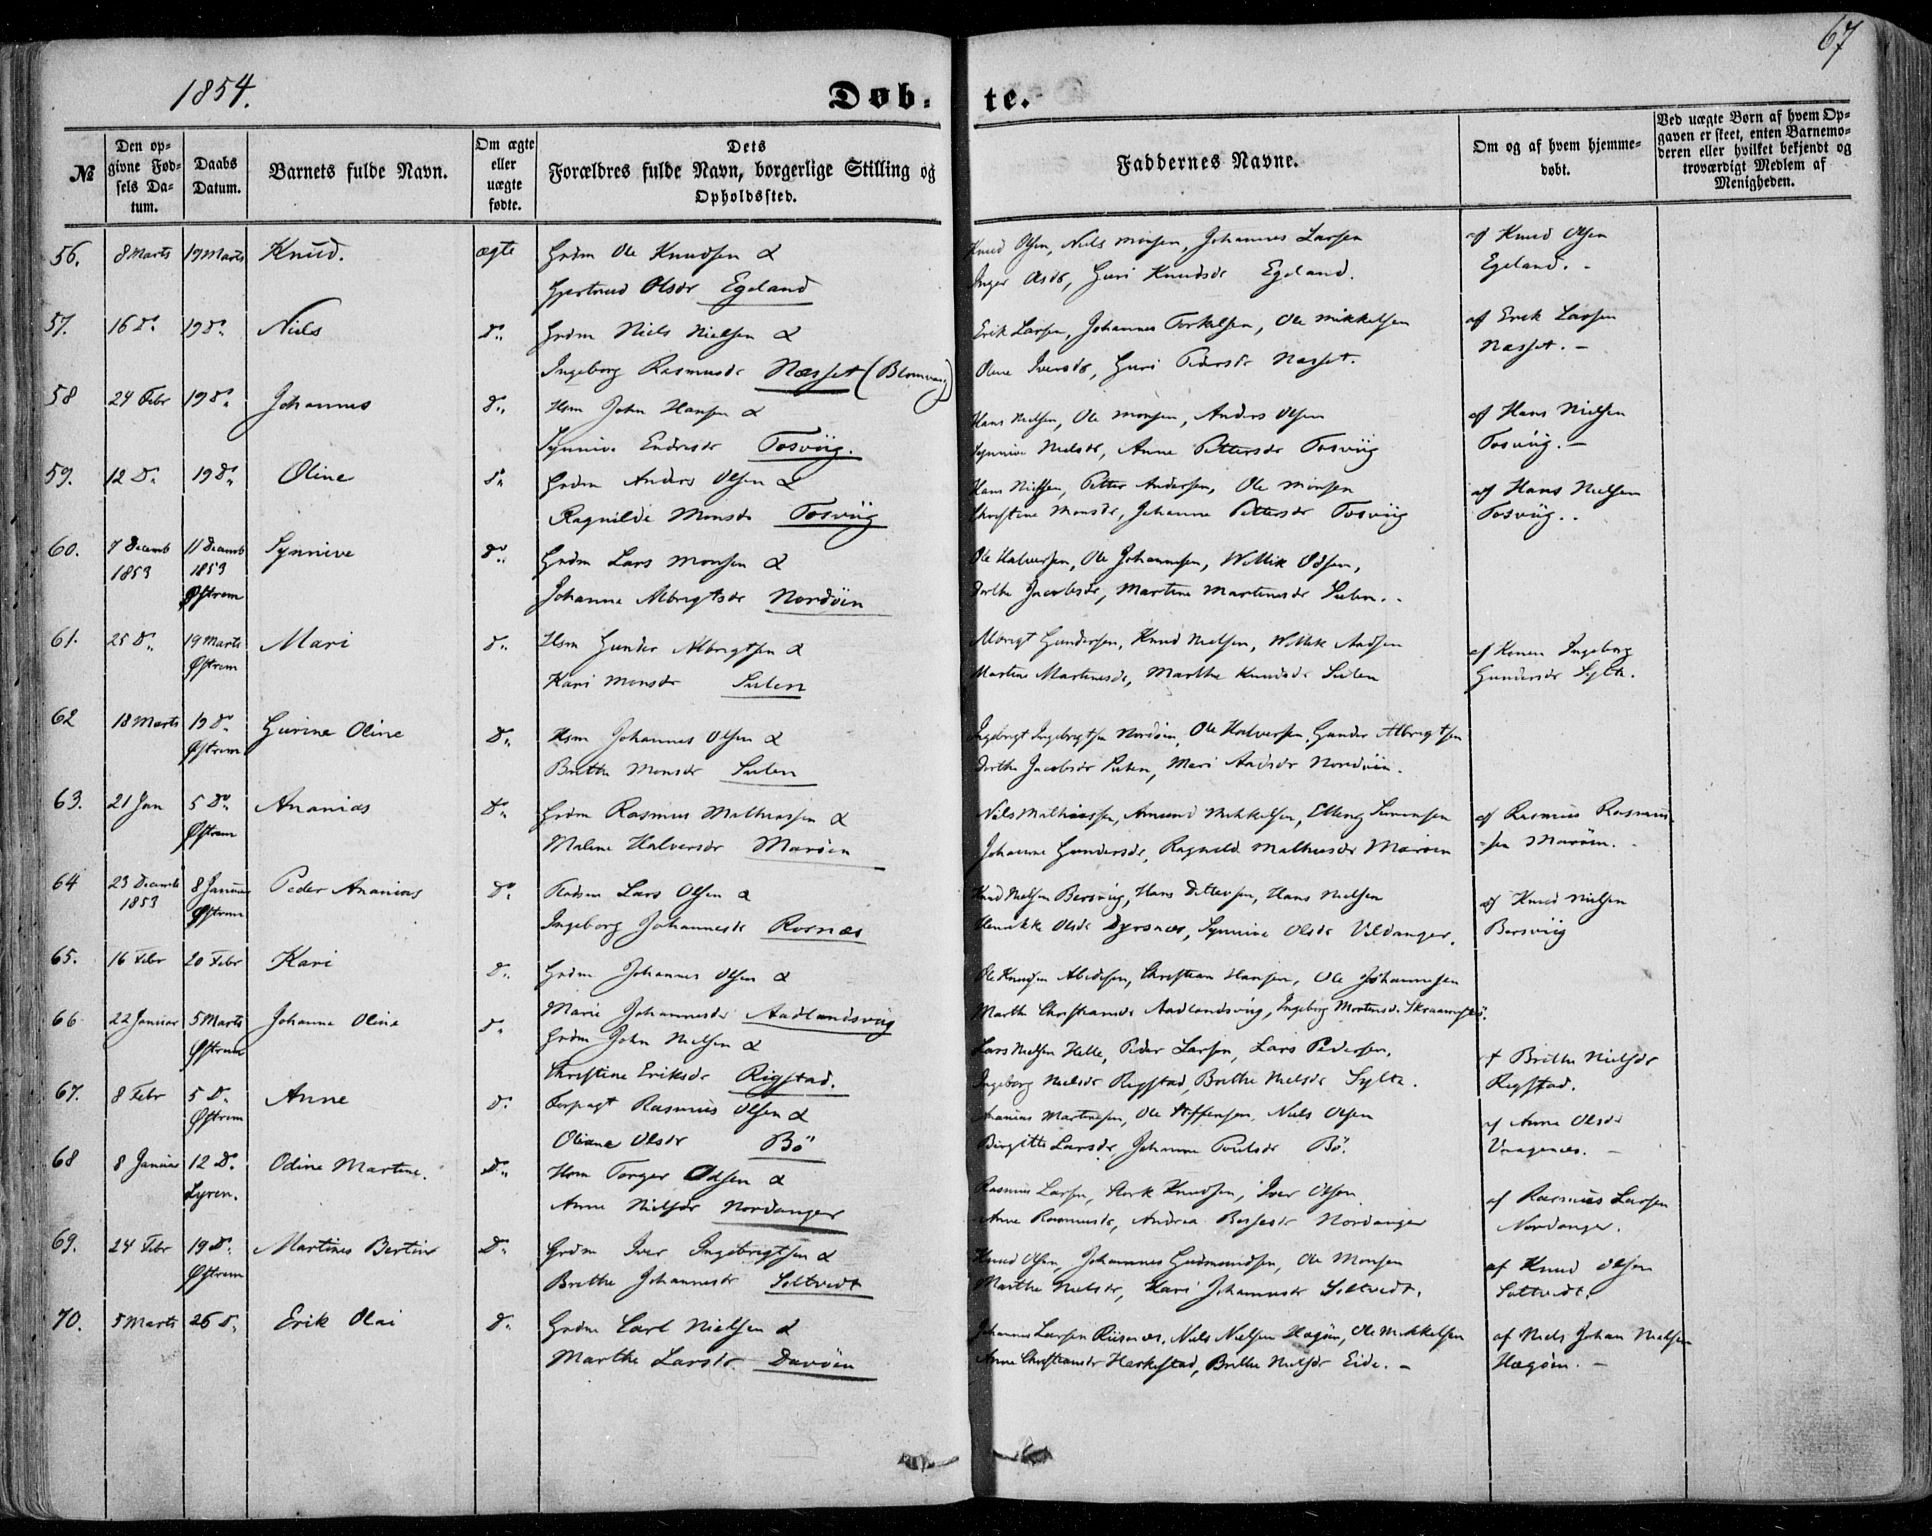 67
1854.
Døb- te.
№ Den opgivne Fødsels Datum. Daabs Datum. Barnets fulde Navn. Om ægte eller uægte fødte. Dets Forældres fulde Navn, borgerlige Stilling og Opholdssted. Faddernes Navne. Om og af hvem hjemmedøbt. Ved uægte Børn af hvem Opgaven er skeet, enten Barnemoderen eller hvilket bekjendt og troværdigt Medlem af Menigheden.
56. 8 Marts 19 Marts Knud. ægte Grdm Ole Knudsen & Knud Olsen, Niels Monsen, Johannes Larsen af Knud Olsen
Gjertrud Olsdr Egeland Inger Olsdr, Guri Knudsdr Egeland. Egeland. -
57. 16 Do 19 Do Niels Do Grdm Niels Nielsen & Erik Larsen, Johannes Torkelsen, Ole Mikkelsen af Erik Larsen
Ingeborg Rasmusdr Næsset (Blomvaag) Oline Iversdr, Guri Pedersdr Næsset. Næsset. -
58 24 Febr 19 Do Johannes Do Hsm John Hansen & Hans Nielsen, Ole Monsen, Anders Olsen af Hans Nielsen
Synnive Endresdr Tosviig. Synnive Nielsdr, Anne Pettersdr Tosviig Tosviig. -
59. 12 Do 19 Do Oline Do Grdm Anders Olsen & Hans Nielsen, Petter Andersen, Ole Monsen af Hans Nielsen
Ragnilde Monsdr Tosviig Christine Monsdr, Johanne Pettersdr Tosviig Tosviig..
60. 7 Decemb 1853 11 Decemb 1853 Østrem Synnive Do Grdm Lars Monsen & Ole Halversen, Ole Johannesen, Willik Odsen,
Johanne Albregtsdr Nordøen Dorthe Jacobsdr, Martine Martinesdr Sulen..
61. 25 Do 19 Marts Østrem Mari Do Hsm Gunder Albregtsen & Albregt Gundersen, Knud Nielsen, Willik Aadsen af Konen Ingeborg
Kari Monsdr Sulen Martine Martinesdr, Marthe Knudsdr Sulen Gundersdr Sylte.
62 18 Marts 19 Do Østrem Gurine Oline Do Hsm Johannes Olsen & Ingebrigt Ingebrigtsen Nordøen, Ole Halversen, Gunder Albregtsen
Brithe Monsdr Sulen Dorthe Jacobsdr Sulen, Mari Aadsdr Nordøen.
63. 21 Jan 5 Do Østrem Ananias Do Grdm Rasmus Mathiassen & Nils Mathiassen, Amund Mikkelsen, Elling Simensen af Rasmus Rasmus-
Malene Halversdr Marøen Johanne Gundersdr, Ragnild Mathiasdr Marøen -sen Marøen. -
64 23 Decemb 1853 8 Januar Østrem Peder Ananias Do Lars Olsen & Knud Nielsen Bersviig, Hans Ditlevsen, Hans Nielsen af Knud Nielsen
Ingeborg Johannesdr Rornæs Henrikke Olsdr Dyrsnæs, Synnive Olsdr Vildanger. Bersviig
65. 16 Febr 20 Febr Kari Do Grdm Johannes Olsen & Ole Knudsen, Christian Hansen, Ole Johannesen
Marie Johannesdr Aadlandsviig Marthe Christiansdr Aadlandsviig, Ingeborg Mortensdr
66 22 Januar 5 Marts Østrem Johanne Oline Do Grdm John Nielsen & Lars Nielsen Helle, Peder Larsen, Lars Pedersen, af Brithe Nielsdr
Christine Eriksdr Rigstad. Ingeborg Nielsdr Rigstad, Brithe Nielsdr Sylte. Rigstad.
67. 8 Febr 5 Do Østrem Anne Do Forpagt Rasmus Olsen & Ananias Martinesen, Ole Steffensen, Niels Olsen af Anne Olsdr
Oliane Olsdr Bö Birgitte Larsdr, Johanne Poulsdr Bö. Vragenæs. -
68 8 Januar 12 Do Lyren. Odine Martine. Do Hsm Torger Odsen & Rasmus Larsen, Stork Knudsen, Iver Olsen af Rasmus Larsen
Anne Nielsdr Nordanger Anne Rasmusdr, Andrea Bessesdr Nordanger Nordanger.
69. 24 Febr 19 Do Østrem Martines Bertin Do Grdm Iver Ingebrigtsen & Knud Olsen, Johannes Gudmundsen, Ole Monsen af Knud Olsen
Brithe Johannesdr Soltvedt Marthe Nielsdr, Kari Johannesdr Soltvedt. Soltvedt.
70. 5 Marts 26 Do Erik Olai Do Grdm Carl Nielsen & Johannes Larsen Riisnæs, Nils Nielsen Hagøen, Ole Mikkelsen af Niels Johan Nielsen
Marthe Larsdr. Davøen Anne Christiansdr Harkestad, Brithe Nielsdr Eide. - Hagøen. -